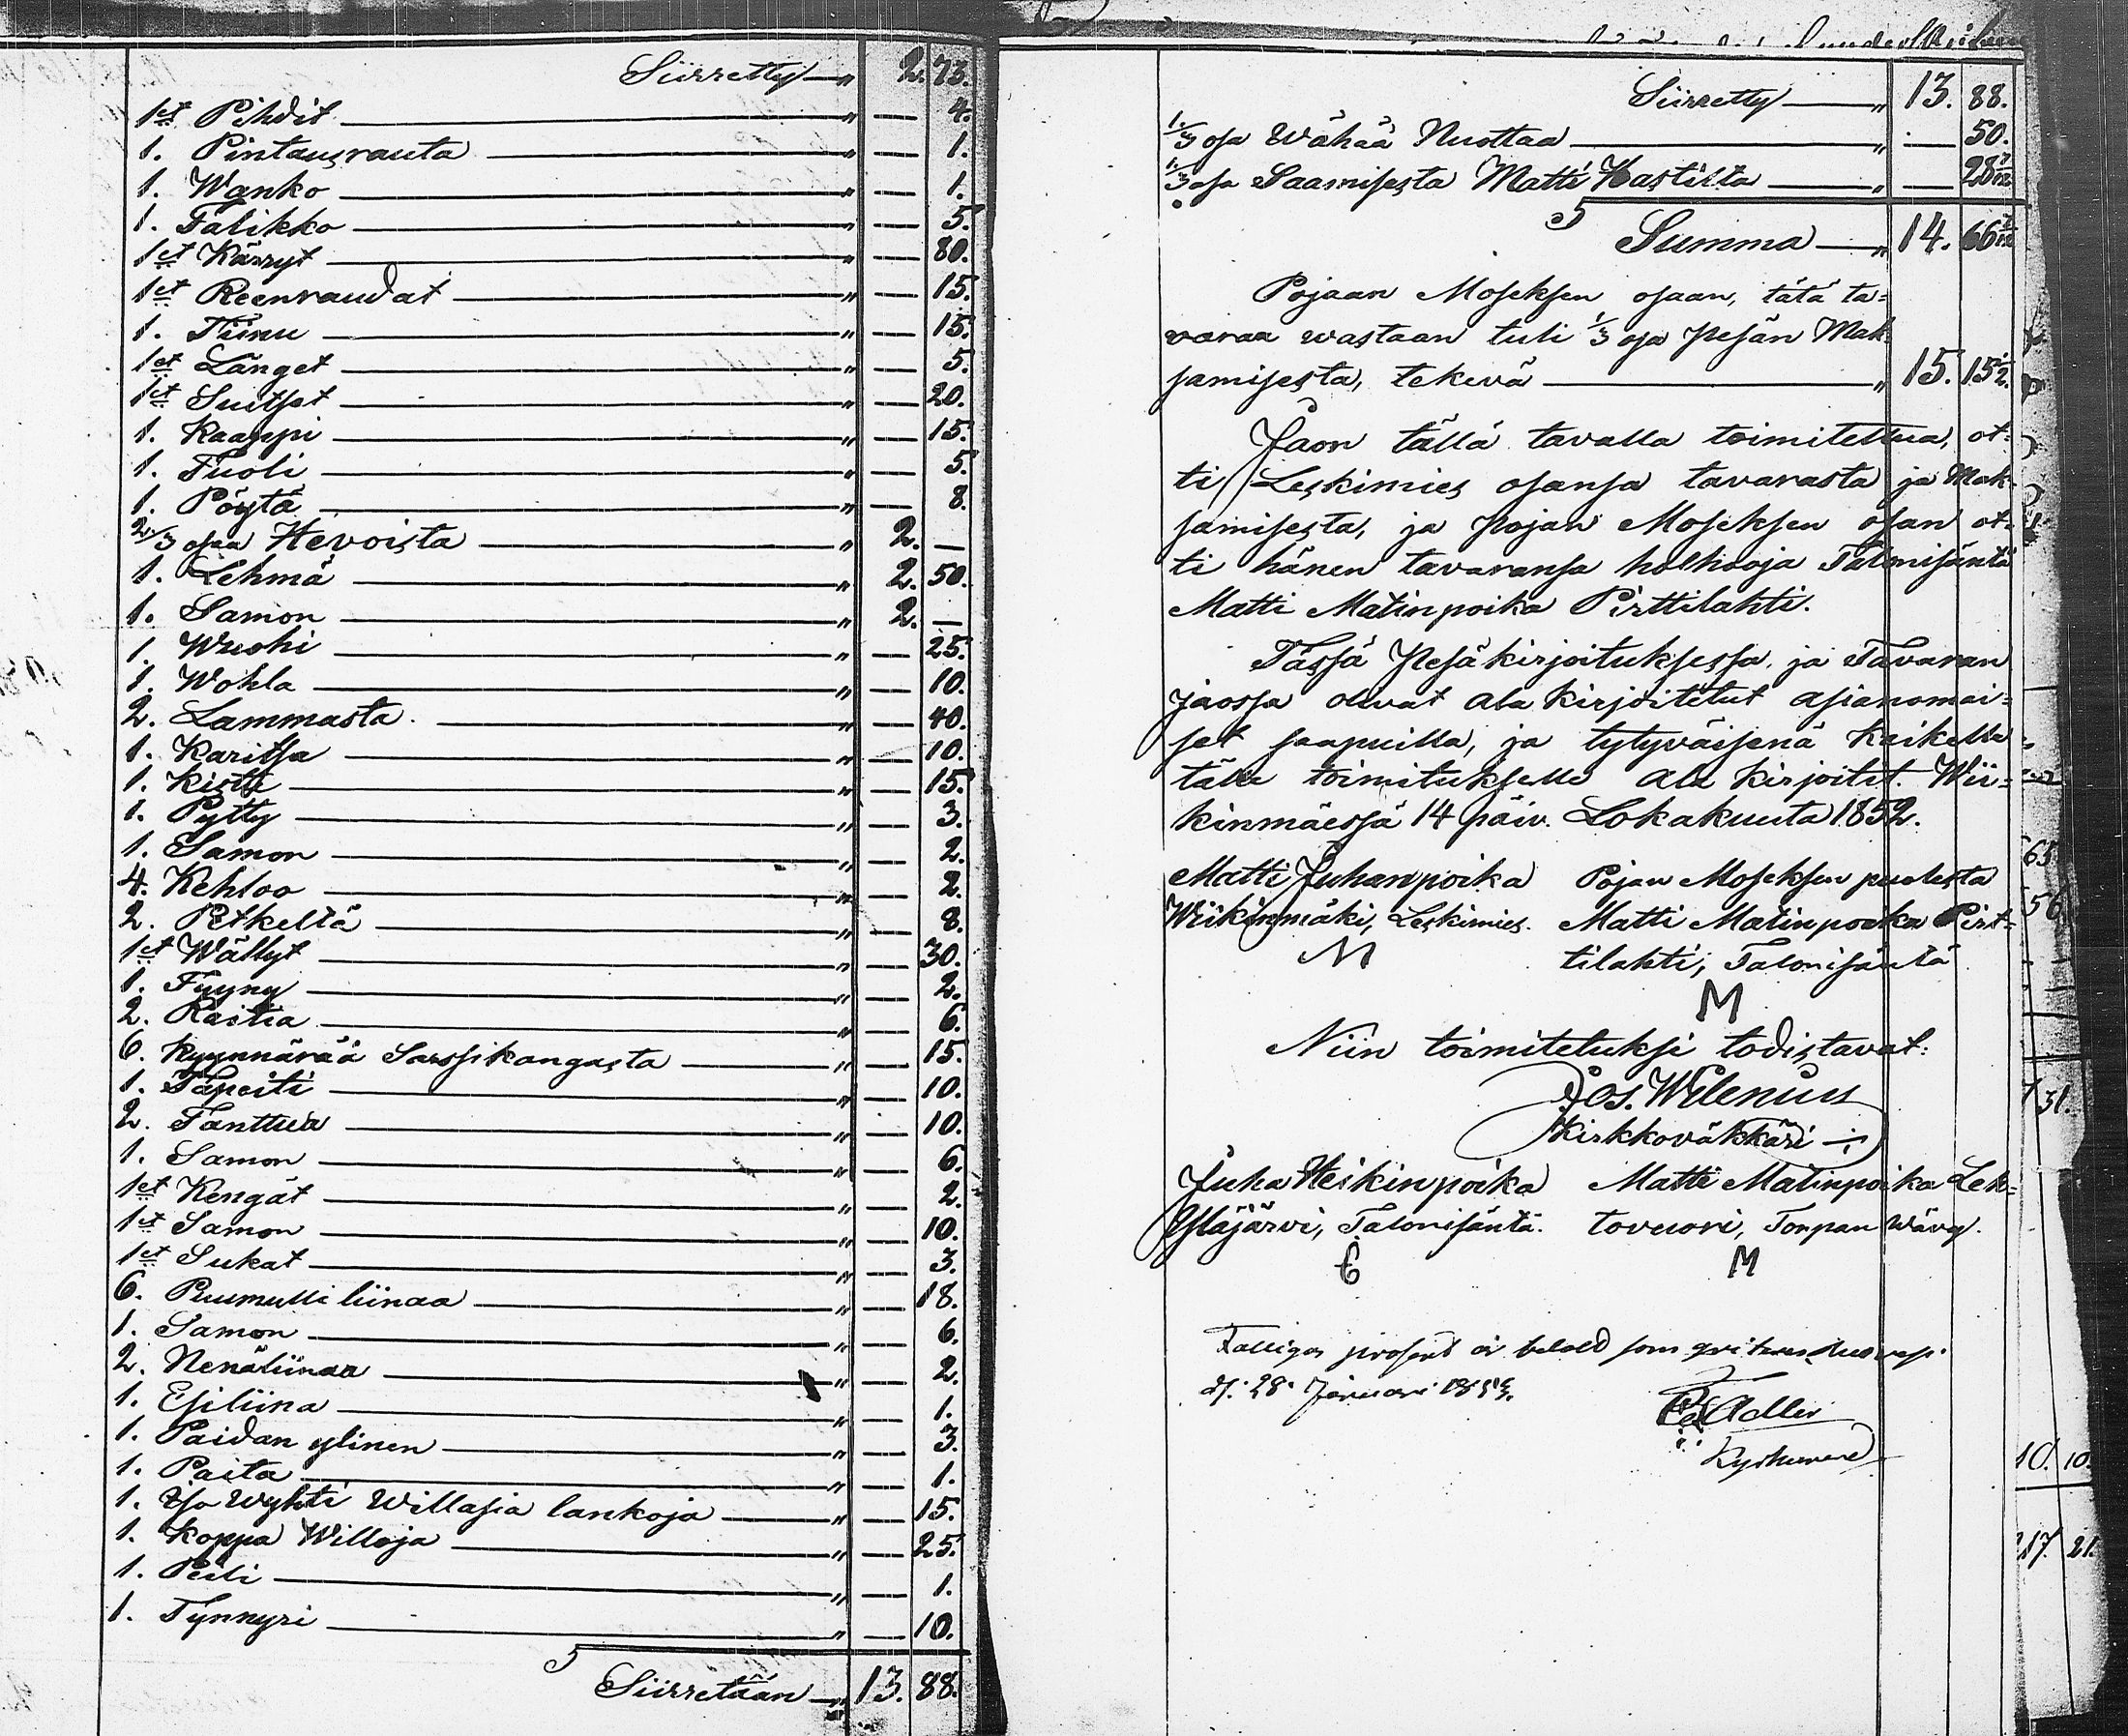 Siirretty — „ 2. 73.
1et Pihdit — „ — 4.
1. Pintausrauta — „ — 1.
1. Wanko — „ — 1.
1. Talikko — „ — 5.
1et Kärryt — „ — 80.
1et Reenraudat — „ — 15.
1. Tiinu — „ — 15.
1et Länget — „ — 5.
1et Suitset — „ — 20.
1. Kaappi — „ — 15.
1. Tuoli — „ — 5.
1. Pöytä — „ — 8.
2/3 osaa Hevoista — „ 2. —
1. Lehmä — „ 2. 50.
1. Samon — „ 2. —
1. Wuohi — „ — 25.
1. Wohla — „ — 10.
2. Lammasta — „ — 40.
1. Karitsa — „ — 10.
1. Kistu — „ — 15.
1. Pytty — „ — 3.
1. Samon — „ — 2.
4. Kehloo — „ — 2.
2. Petkeltä — „ — 8.
1et Wällyt — „ — 30.
1. Tyyny — „ — 2.
2. Raitia — „ — 6.
6. Kyynnärää Sarssikangasta — „ — 15.
1. Täpeiti — „ — 10.
2. Tanttua — „ — 10.
1. Samon — „ — 6.
1et Kengät — „ — 2.
1et Samon — „ — 10.
1et Sukat — „ — 3.
6. Puumulli liinaa — „ — 18.
1. Samon — „ — 6.
2. Nenäliinaa — „ — 2.
1. Esiliina — „ — 1.
1. Paidan ylinen — „ — 3.
1. Paita — „ — 1.
1. Iso Wyhti Willasia lankoja — „ — 15.
1. Koppa Willoja — „ — 25.
1. Peili — „ — 1.
1. Tynnyri — „ — 10.
Siirretään — „ 13. 88.
Siirretty — „ 13. 88.
1/3 osa Wähää Nuottaa — „ — 50.
1/3 osa Saamisesta Matti Hastilta — „ — 28 7/12
Summa — „ 14. 66 7/12
Pojaan Moseksen osaan, tätä ta=
varaa wastaan tuli 1/3 osa Pesän Mak=
samisesta, tekevä — „ 15. 15 1/2.
Jaon tällä tavalla toimitettua, ot=
ti Leskimies osansa tavarasta ja Mak=
samisesta, ja Pojan Moseksen osan ot=
ti hänen tavaransa holhooja Talonisäntä
Matti Matinpoika Pirttilahti.
Tässä Pesäkirjoituksessa, ja Tavaran
jaossa olivat ala kirjoitetut asianomai=
set saapuilla, ja tytyväisenä kaikella
tälle toimitukselle ala kirjoitet. Wii=
kinmäessä 14 päiv. Lokakuuta 1852.
Matti Juhanpoika Pojan Moseksen puolesta
Wiikinmäki, Leskimies. Matti Matinpoika Pirt=
M tilahti, Talonisäntä
M
Niin toimitetuksi todistavat:
Jos. Wilenius
Kirkkoväkkäri
Juha Heikinpoika Matti Matinpoika Leh=
Yläjärvi, Talonisäntä. tovuori, Torpan wävy.
E M
Fattigas prosent är betald som
d. 28 Januari 1853.
Adler
65
56
31.
10. 10.
217. 21.